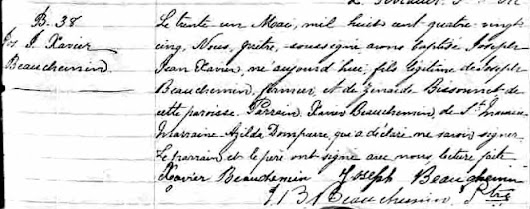 B. 38
Jos J. Xavier
Beauchemin
Le trente un Mai, mil huit cent quatre vingt
cinq, Nous, prêtre, soussigné avons baptisé Joseph
Jean Xavier, né aujourd'hui, fils légitime de Joseph
Beauchemin, fermier, et de Zenaïde Bissonnet de
cette paroisse. Parrain Xavier Beauchemin, de St
Marraine Azilda Dompierre, qui a déclaré ne savoir signer.
Le parrain et le père ont signé avec nous, lecture faite
Xavier Beauchemin Joseph Beauchemin
J B Beauchemin Ptre